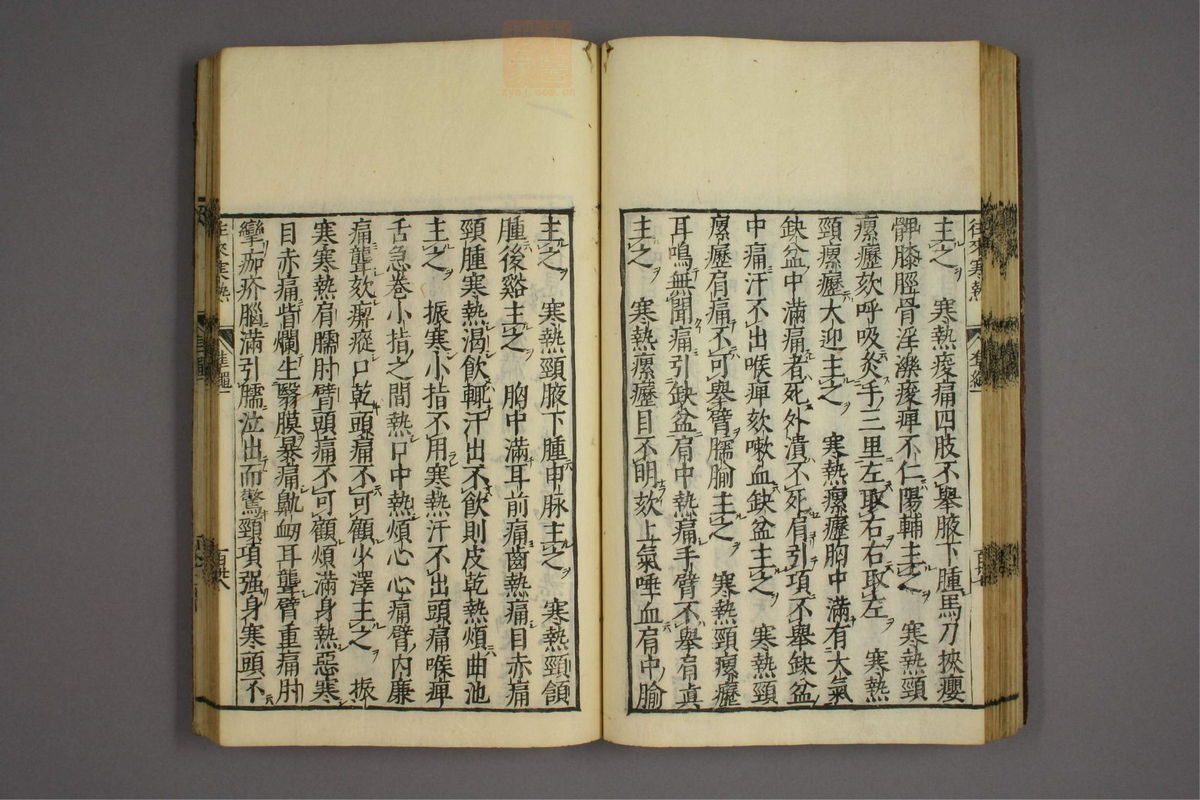 主之　寒熱痠痛四肢不舉腋下腫馬刀挾癭
髀膝脛骨淫濼痠痺不仁陽輔主之　寒熱頸
瘰癧欬呼吸灸手三里左取右右取左　寒熱
頸瘰癧大迎主之　寒熱瘰癧胸中滿有大氣
缺盆中滿痛者死外潰不死肩引項不舉缺盆
中痛汗不出喉痺欬嗽血缺盆主之　寒熱頸
瘰癧肩痛不可舉臂臑腧主之　寒熱頸瘰癧
耳鳴無聞痛引缺盆肩中熱痛手臂不舉肩真
主之　寒熱瘰癧目不明欬上氣唾血肩中腧
主之　寒熱頸腋下腫申脉主之　寒熱頸頷
腫後谿主之　胸中滿耳前痛齒熱痛目赤痛
頸腫寒熱渴飲輒汗出不飲則皮乾熱煩曲池
主之　振寒小指不用寒熱汗不出頭痛喉痺
舌急卷小指之間熱口中熱煩心心痛臂內廉
痛聾欬瘈瘲口乾頭痛不可顧少澤主之　振
寒寒熱肩臑肘臂頭痛不可顧煩滿身熱惡寒
目赤痛眥爛生翳膜暴痛鼽衄耳聾臂重痛肘
攣痂疥腦滿引臑泣出而驚頸項强身寒頭不